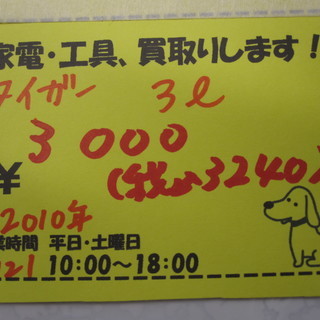 家電・工具、買取りします!
タイガー 3ℓ
¥ 3000
(税込3240)
2010年
業時間 平日・土曜日
121 10:00～18:00